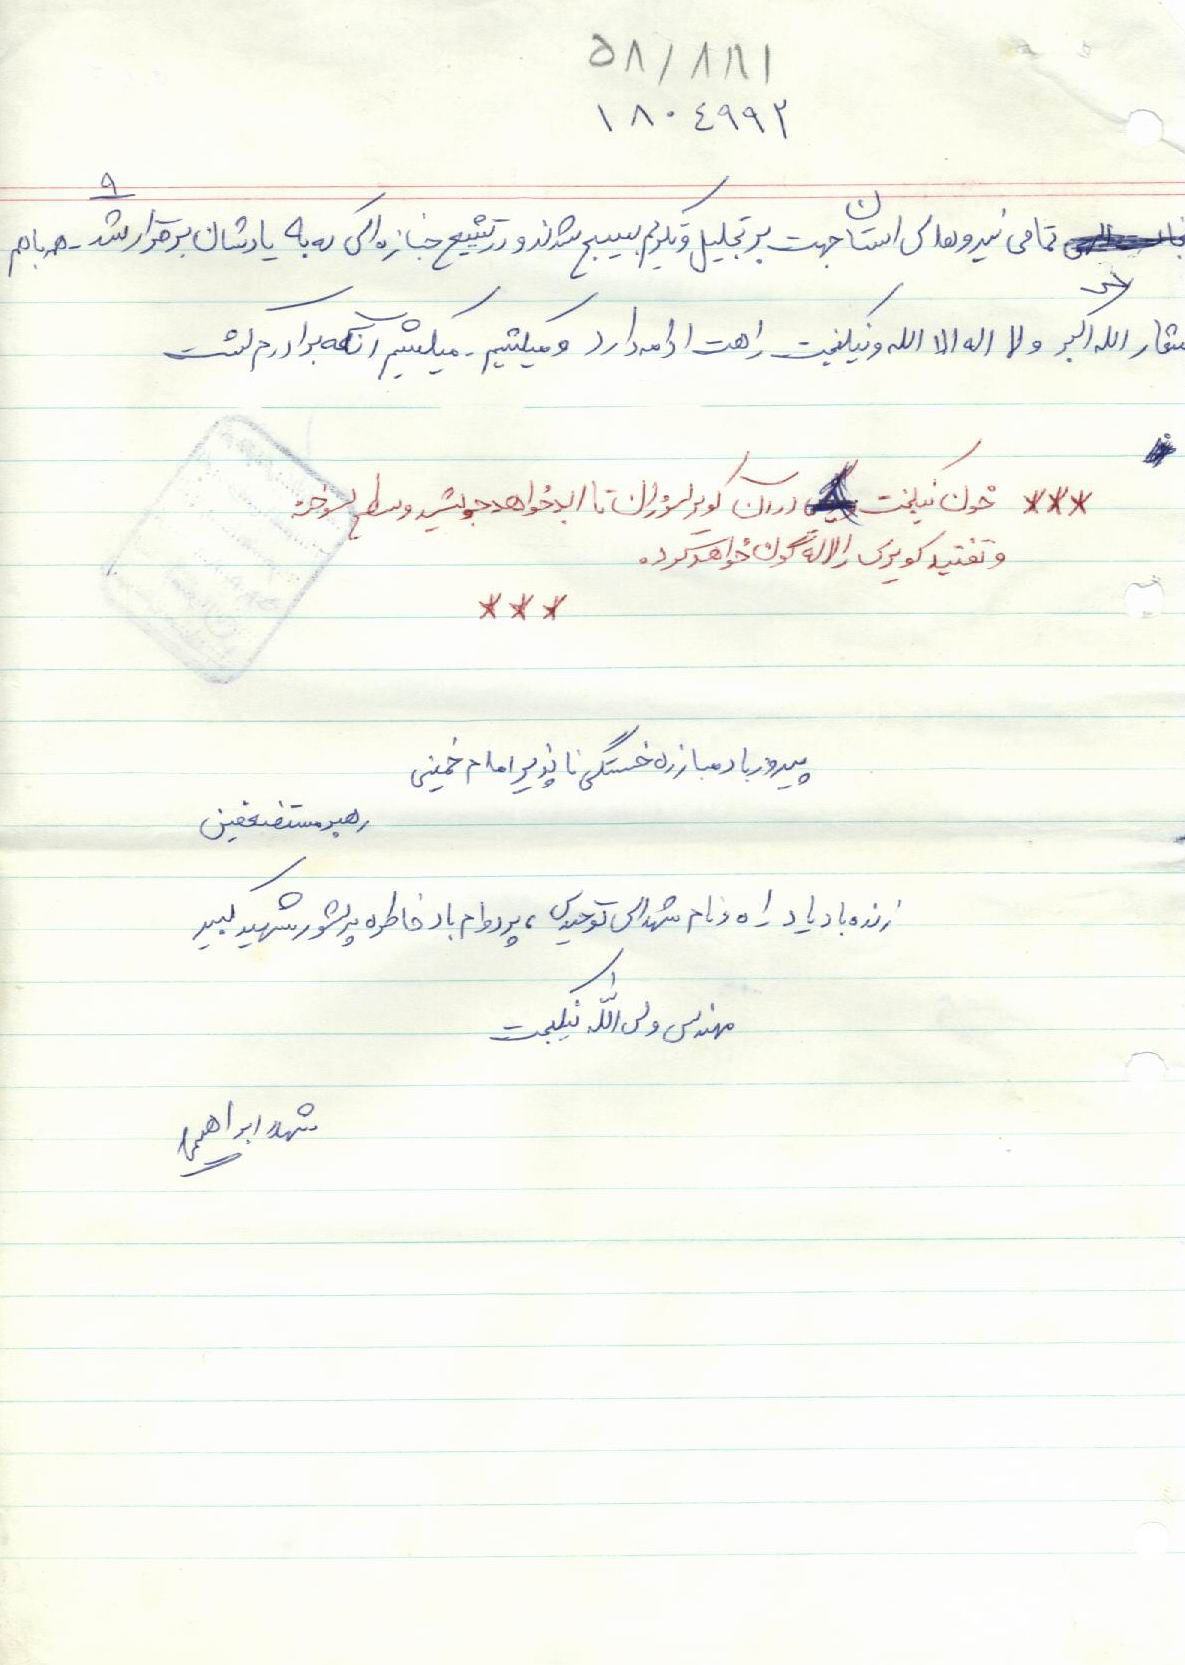 ۵۸/۸۸۱
۱۸۰۴۹۹۲
۹
تمامی نیروهای استان جهت تجلیل و تکریم بسیج شدند و در تشییع جنازه‌ای که به یادشان برقرار شد - همه با هم
شعار الله اکبر و لا اله الا الله و نیکبخت راهت ادامه دارد و میکشیم - میکشیم آنکه برادرم کشت
*** خون نیکبخت در آن کویر سوزان تا ابد خواهد جوشید و سطح سوخته
و تفتید کویری را لاله گون خواهد کرد.
***
پیروز باد مبارزه خستگی ناپذیر امام خمینی
رهبر مستضعفین
زنده باد یاد راه و نام شهدای توحیدی، پر دوام باد خاطره پر شور شهید کبیر
مهندس ولی الله نیکبخت
ابراهیمی